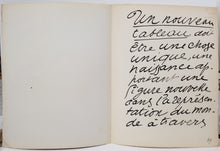 Un nouveau
tableau doit
être une chose
unique, une
naissance ap-
portant une
figure nouvelle
dans la représen-
tation du mon-
de à travers